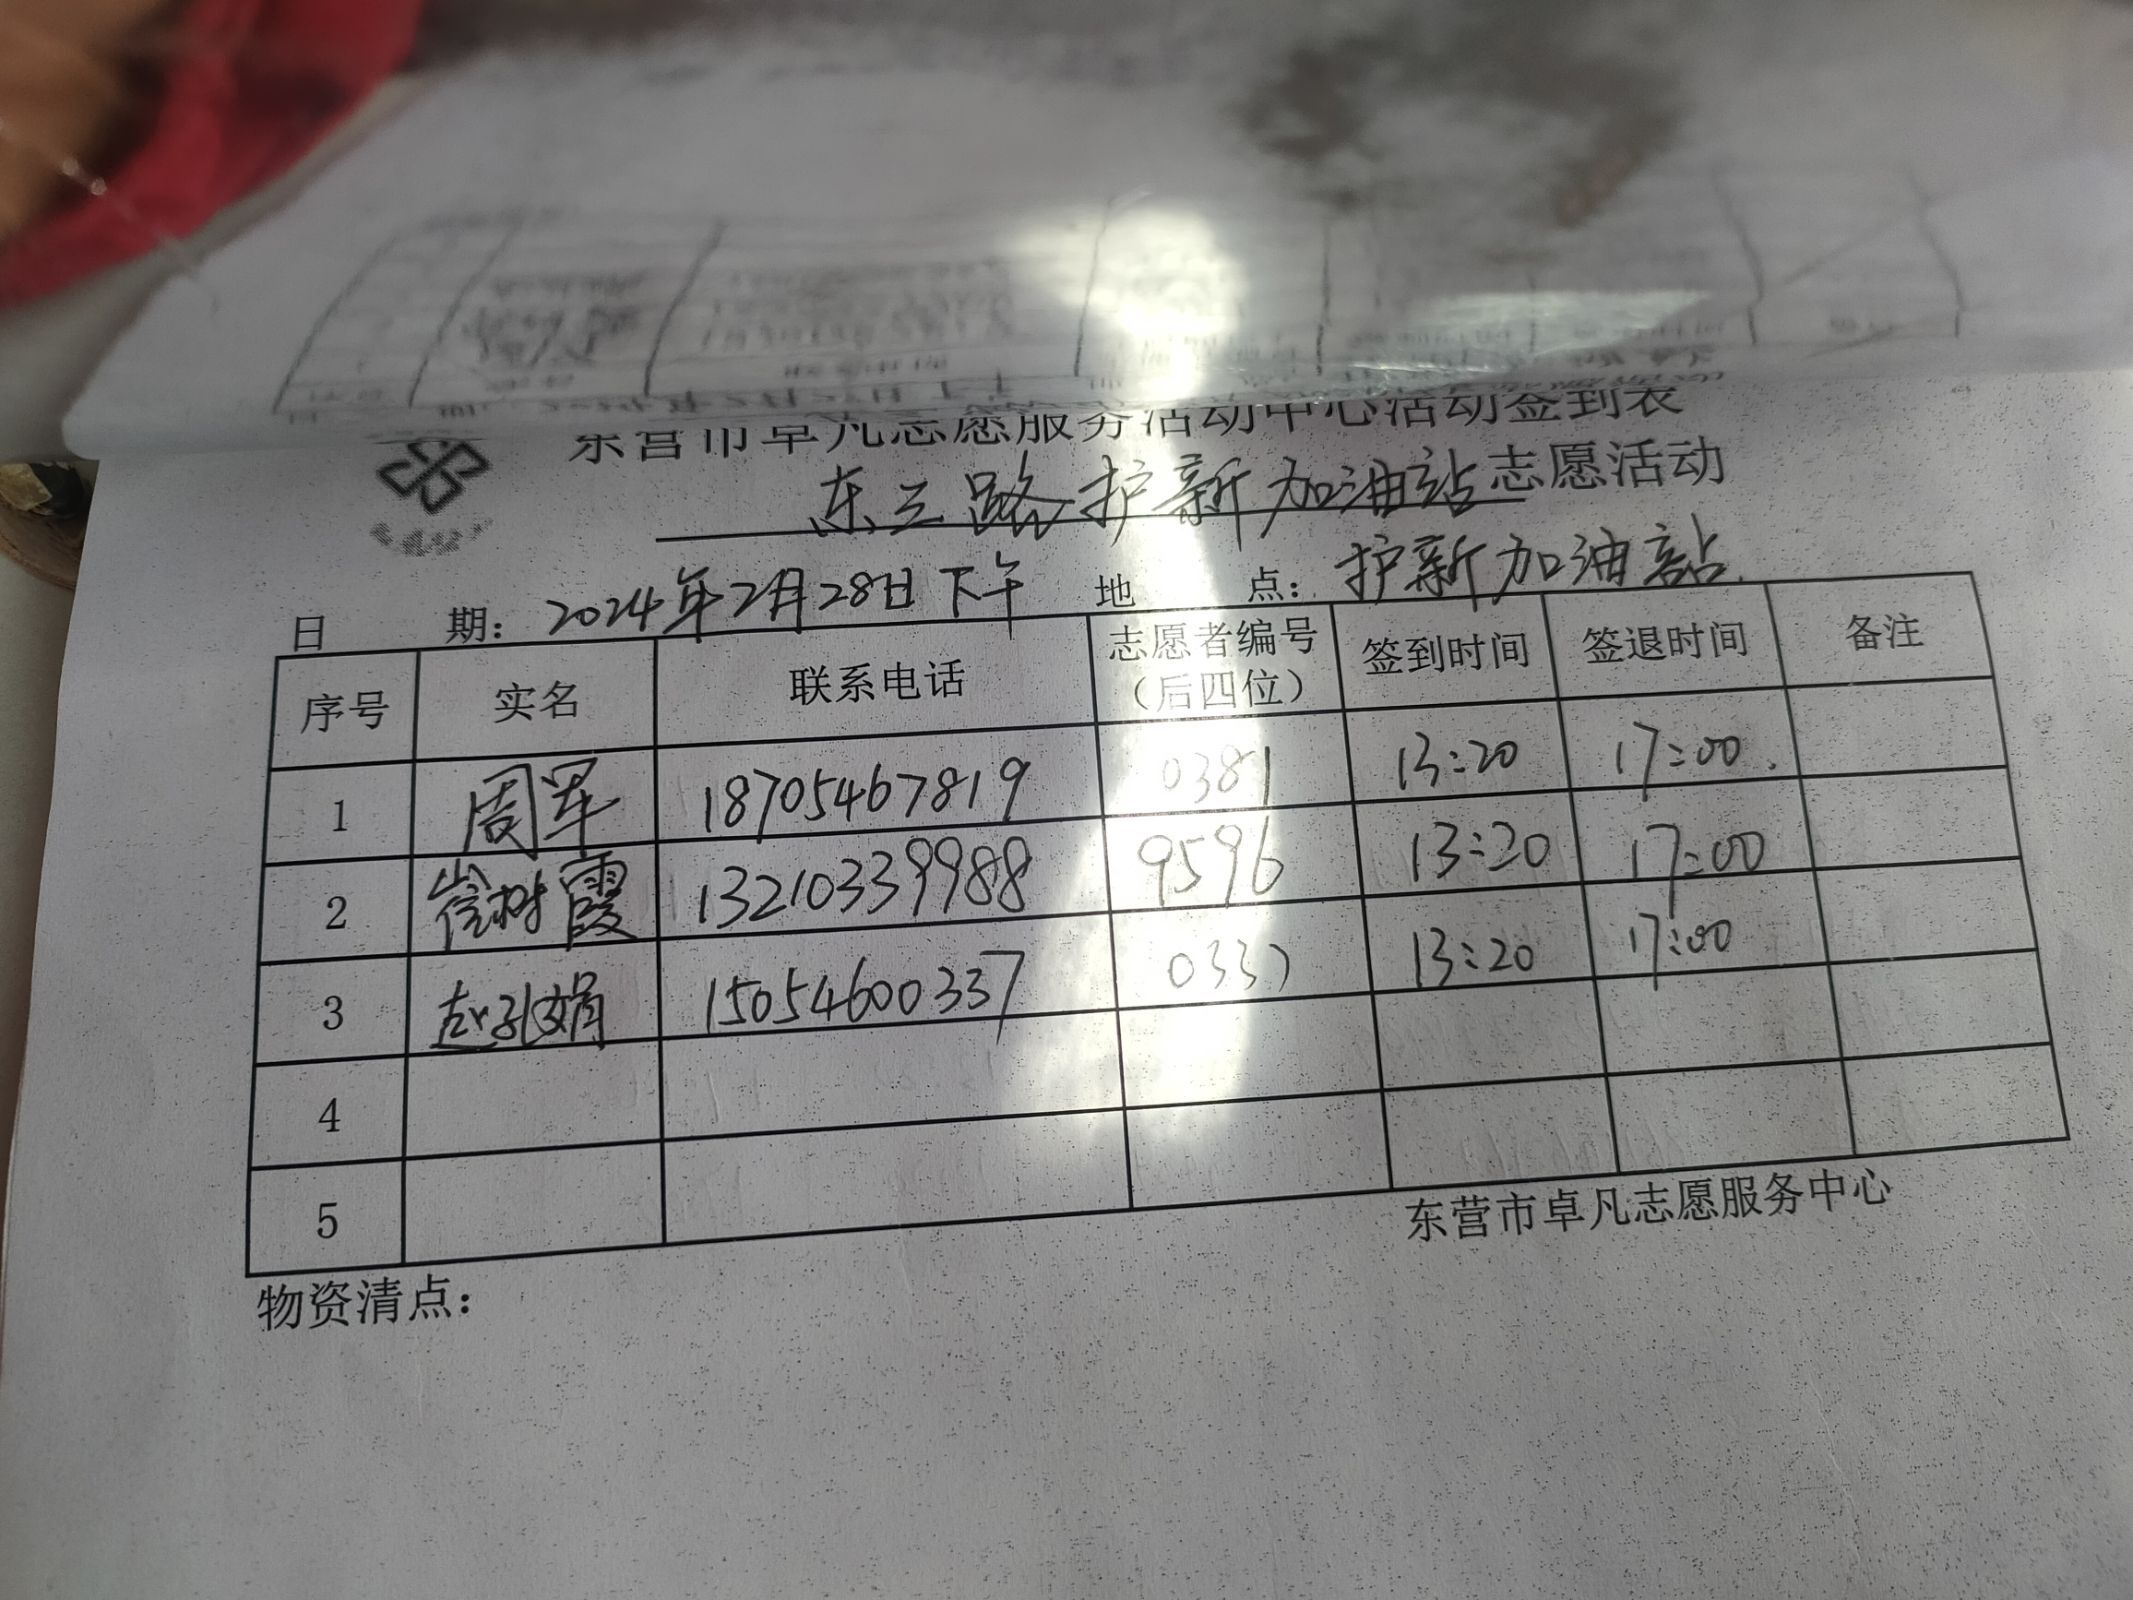 东营市卓凡志愿服务活动中心活动签到表
东三路护新加油站志愿活动
日 期：2024年2月28日下午 地 点：护新加油站
序号 实名 联系电话 志愿者编号（后四位） 签到时间 签退时间 备注
1 周军 18705467819 0381 13:20 17:00.
2 崔树霞 13210339988 9596 13:20 17:00
3 赵孔娟 15054600337 0337 13:20 17:00
4
5
东营市卓凡志愿服务中心
物资清点：